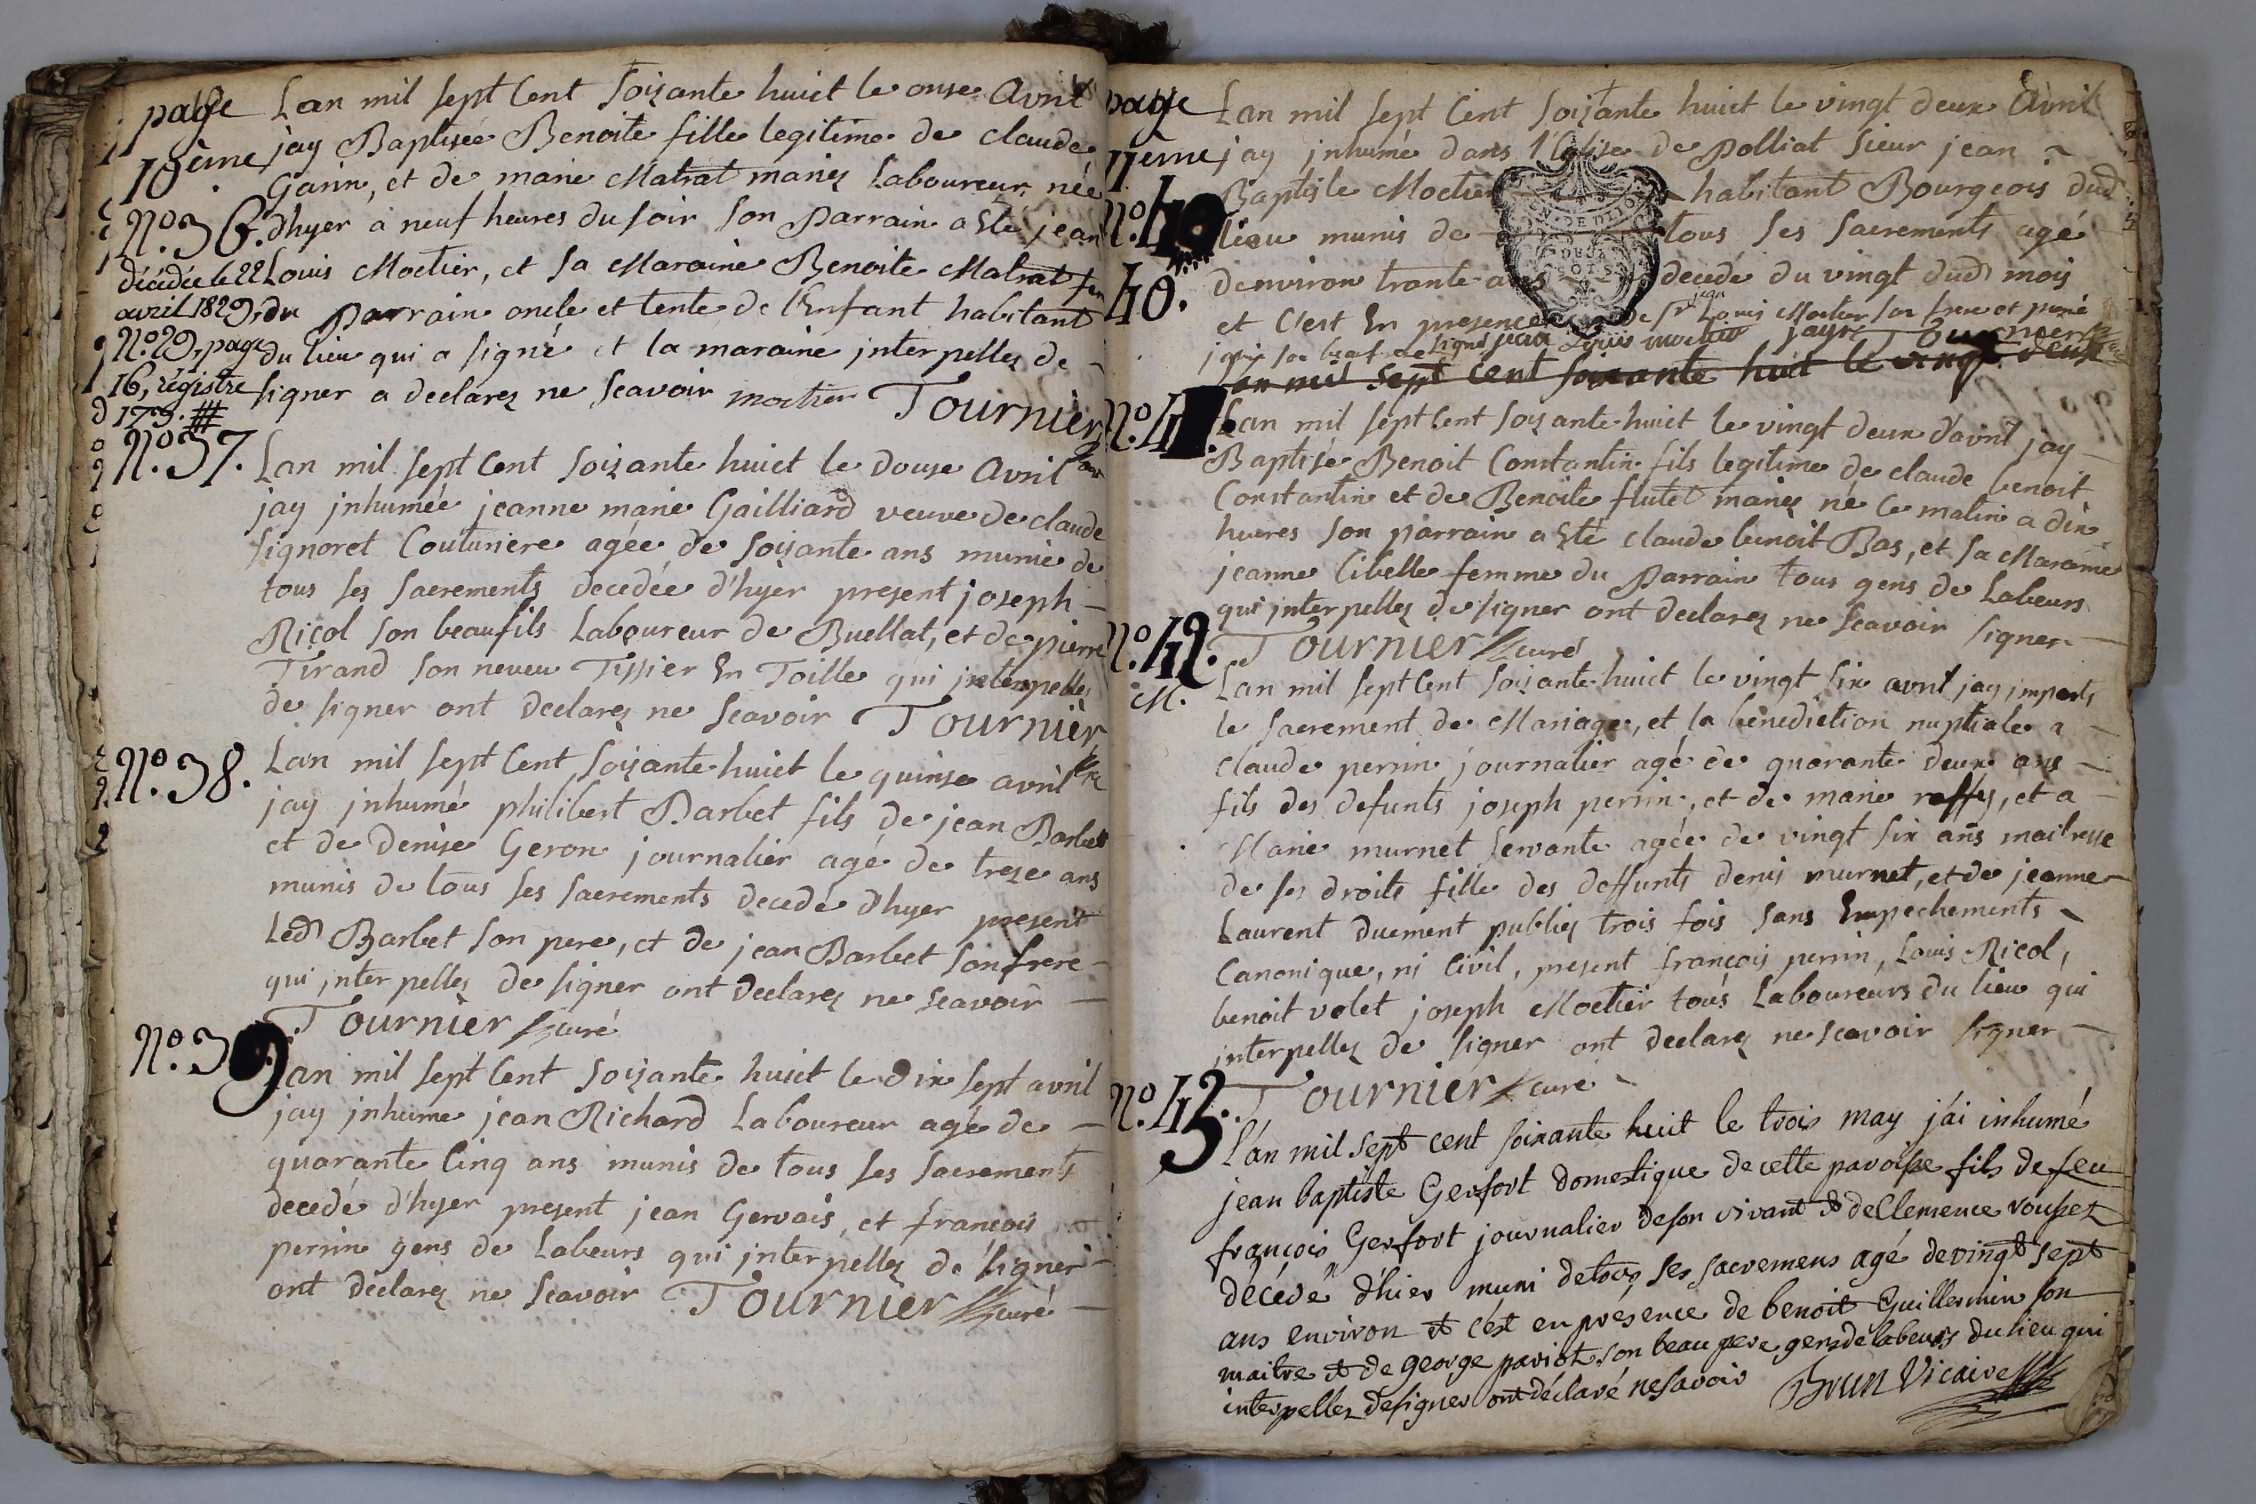 page
10ème
Lan mil sept Cent soixante huict le onse Avril
jay Baptisée Benoite fille legitime de claude
Garin, et de marie Matrat mariez Laboureur née
No. 36. dhyer a neuf heures du soir son Parrain a Esté jean
décédée le 22 Louis Moctier, et sa Maraine Benoite Matrat fem
avril 1829, du Parrain oncle et tente de l'Enfant habitant
No. 29, page du lieu qui a signé et la maraine interpellez de
16, régistre signer a declarez ne scavoir moctier Tournier
179. #
No. 37.
Lan mil sept Cent soixante huict le douse Avril
jay jnhumée jeanne marie Gailliard veuve de claude
signoret Couturiere agée de soixante ans munie de
tous ses sacrements decedée d'hyer present joseph
Ricol son beaufils Laboureur de Buellat, et de pierre
Tirand son neveu Tissier En Toille qui jnterpellez
de signer ont declarez ne scavoir Tournier
No. 38. Lan mil sept Cent soixante huict le quinse avril
jay jnhumé philibert Barbet fils de jean Barbet
et de Denise Geron journalier agé de treze ans
munis de tous ses sacrements decedé d'hyer present
Led Barbet son pere, et de jean Barbet son frere
qui jnterpellez de signer ont declarez ne scavoir
Tournier curé
No. 39
Lan mil sept Cent soixante huict le dix sept avril
jay jnhume jean Richard Laboureur agé de
quarante Cinq ans munis de tous ses sacrements
decedé d'hyer present jean Gervais, et françois
perrin gens de Labeurs qui jnterpellez de signer
ont declarez ne scavoir Tournier curé
page
11eme
Lan mil sept Cent soixante huict le vingt deux Avril
jay jnhumé dans l'Eglise de Polliat sieur jean
No. 40 Baptiste Moctier habitant Bourgeois dud
lieu munis de tous ses sacrements agé
40. denviron trante ans decedé du vingt dud mois
et C'est En presence de sr jean Louis Moctier son frere et
signé jean Louis moctier jayr Tournier
Lan mil sept cent soixante huit le vingt deux
No. 41.
Lan mil sept Cent soixante huict le vingt deux d'avril jay
Baptisé Benoit Constantin fils legitime de claude benoit
Constantin et de Benoite flutet mariez né Ce matin a dix
heures son parrain a Esté claude benoit Bas, et sa Maraine
jeanne Cibelle femme du Parrain tous gens de Labeurs
qui jnterpellez de signer ont declarez ne scavoir signer
No. 42. Tournier curé
M.
Lan mil sept Cent soixante huict le vingt six avril jay imparti
le sacrement de Mariage, et la benediction nuptiale a
claude perrin journalier agé de quarante deux ans
fils des defunts joseph perrin, et de marie reffy, et a
Marie murnet servante agée de vingt six ans maitresse
de ses droits fille des deffunts denis murnet, et de jeanne
Laurent duement publiez trois fois sans Empechements
Canonique, ni Civil, present françois perrin, Louis Ricol,
benoit volet joseph Moctier tous Laboureurs du lieu qui
jnterpellez de signer ont declarez ne scavoir signer
No. 43. Tournier curé
L'an mil sept cent soixante huit le trois may j'ai inhumé
jean baptiste Gerfort domestique de cette paroisse fils de feu
françois Gerfort journalier de son vivant & de Clemence rouset
décédé d'hier muni de tous ses sacremens agé de vingt sept
ans environ & c'ést en présence de benoit Guillermin son
maitre & de george pariot son beau pere gens de labeurs du lieu qui
interpellez de signer ont déclaré ne savoir Brun Vicaire